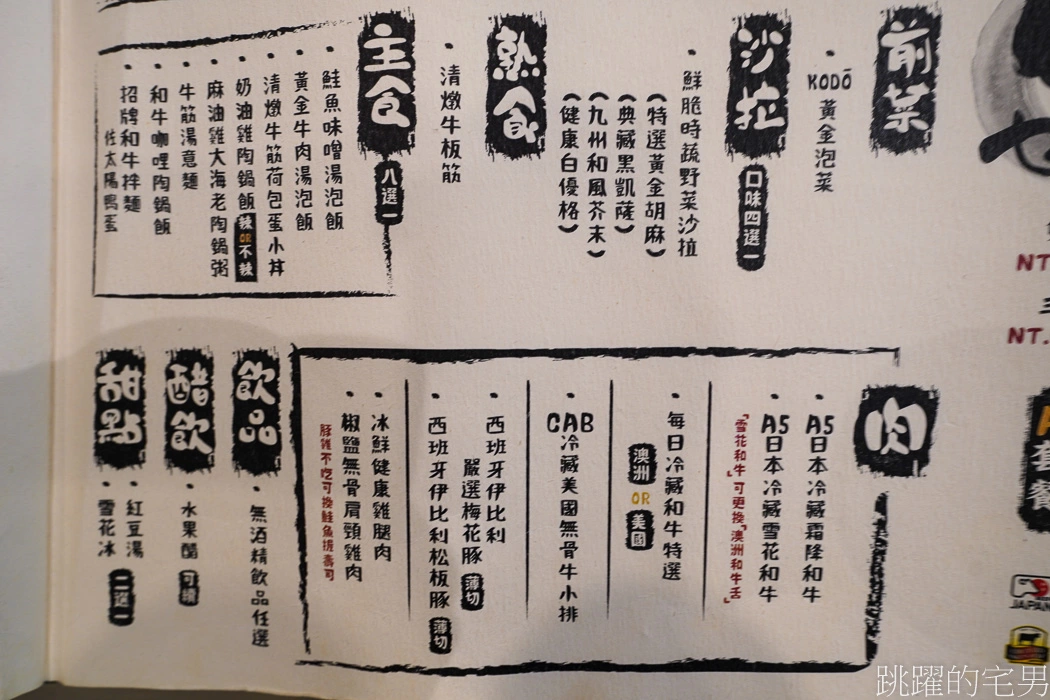 前菜
KODŌ 黃金泡菜
沙拉
口味四選一
鮮脆時蔬野菜沙拉
(特選黃金胡麻)
(典藏黑凱薩)
(九州和風芥末)
(健康白優格)
熟食
清燉牛板筋
主食
八選一
鮭魚味噌湯泡飯
黃金牛肉湯泡飯
清燉牛筋荷包蛋小丼
奶油雞陶鍋飯 辣OR不辣
麻油雞大海老陶鍋粥
牛筋湯意麵
和牛咖哩陶鍋飯
招牌和牛拌麵
佐太陽鴨蛋
肉
A5日本冷藏霜降和牛
A5日本冷藏雪花和牛
「雪花和牛」可更換「澳洲和牛舌」
每日冷藏和牛特選
澳洲 OR 美國
CAB冷藏美國無骨牛小排
西班牙伊比利
嚴選梅花豚 薄切
西班牙伊比利松板豚 薄切
冰鮮健康雞腿肉
椒鹽無骨肩頸雞肉
豚雞不吃可換鮭魚握壽司
飲品
無酒精飲品任選
醋飲
水果醋 可續
甜點
紅豆湯
雪花冰
二選一
NT.
NT.
套餐
JAPAN
跳躍的宅男